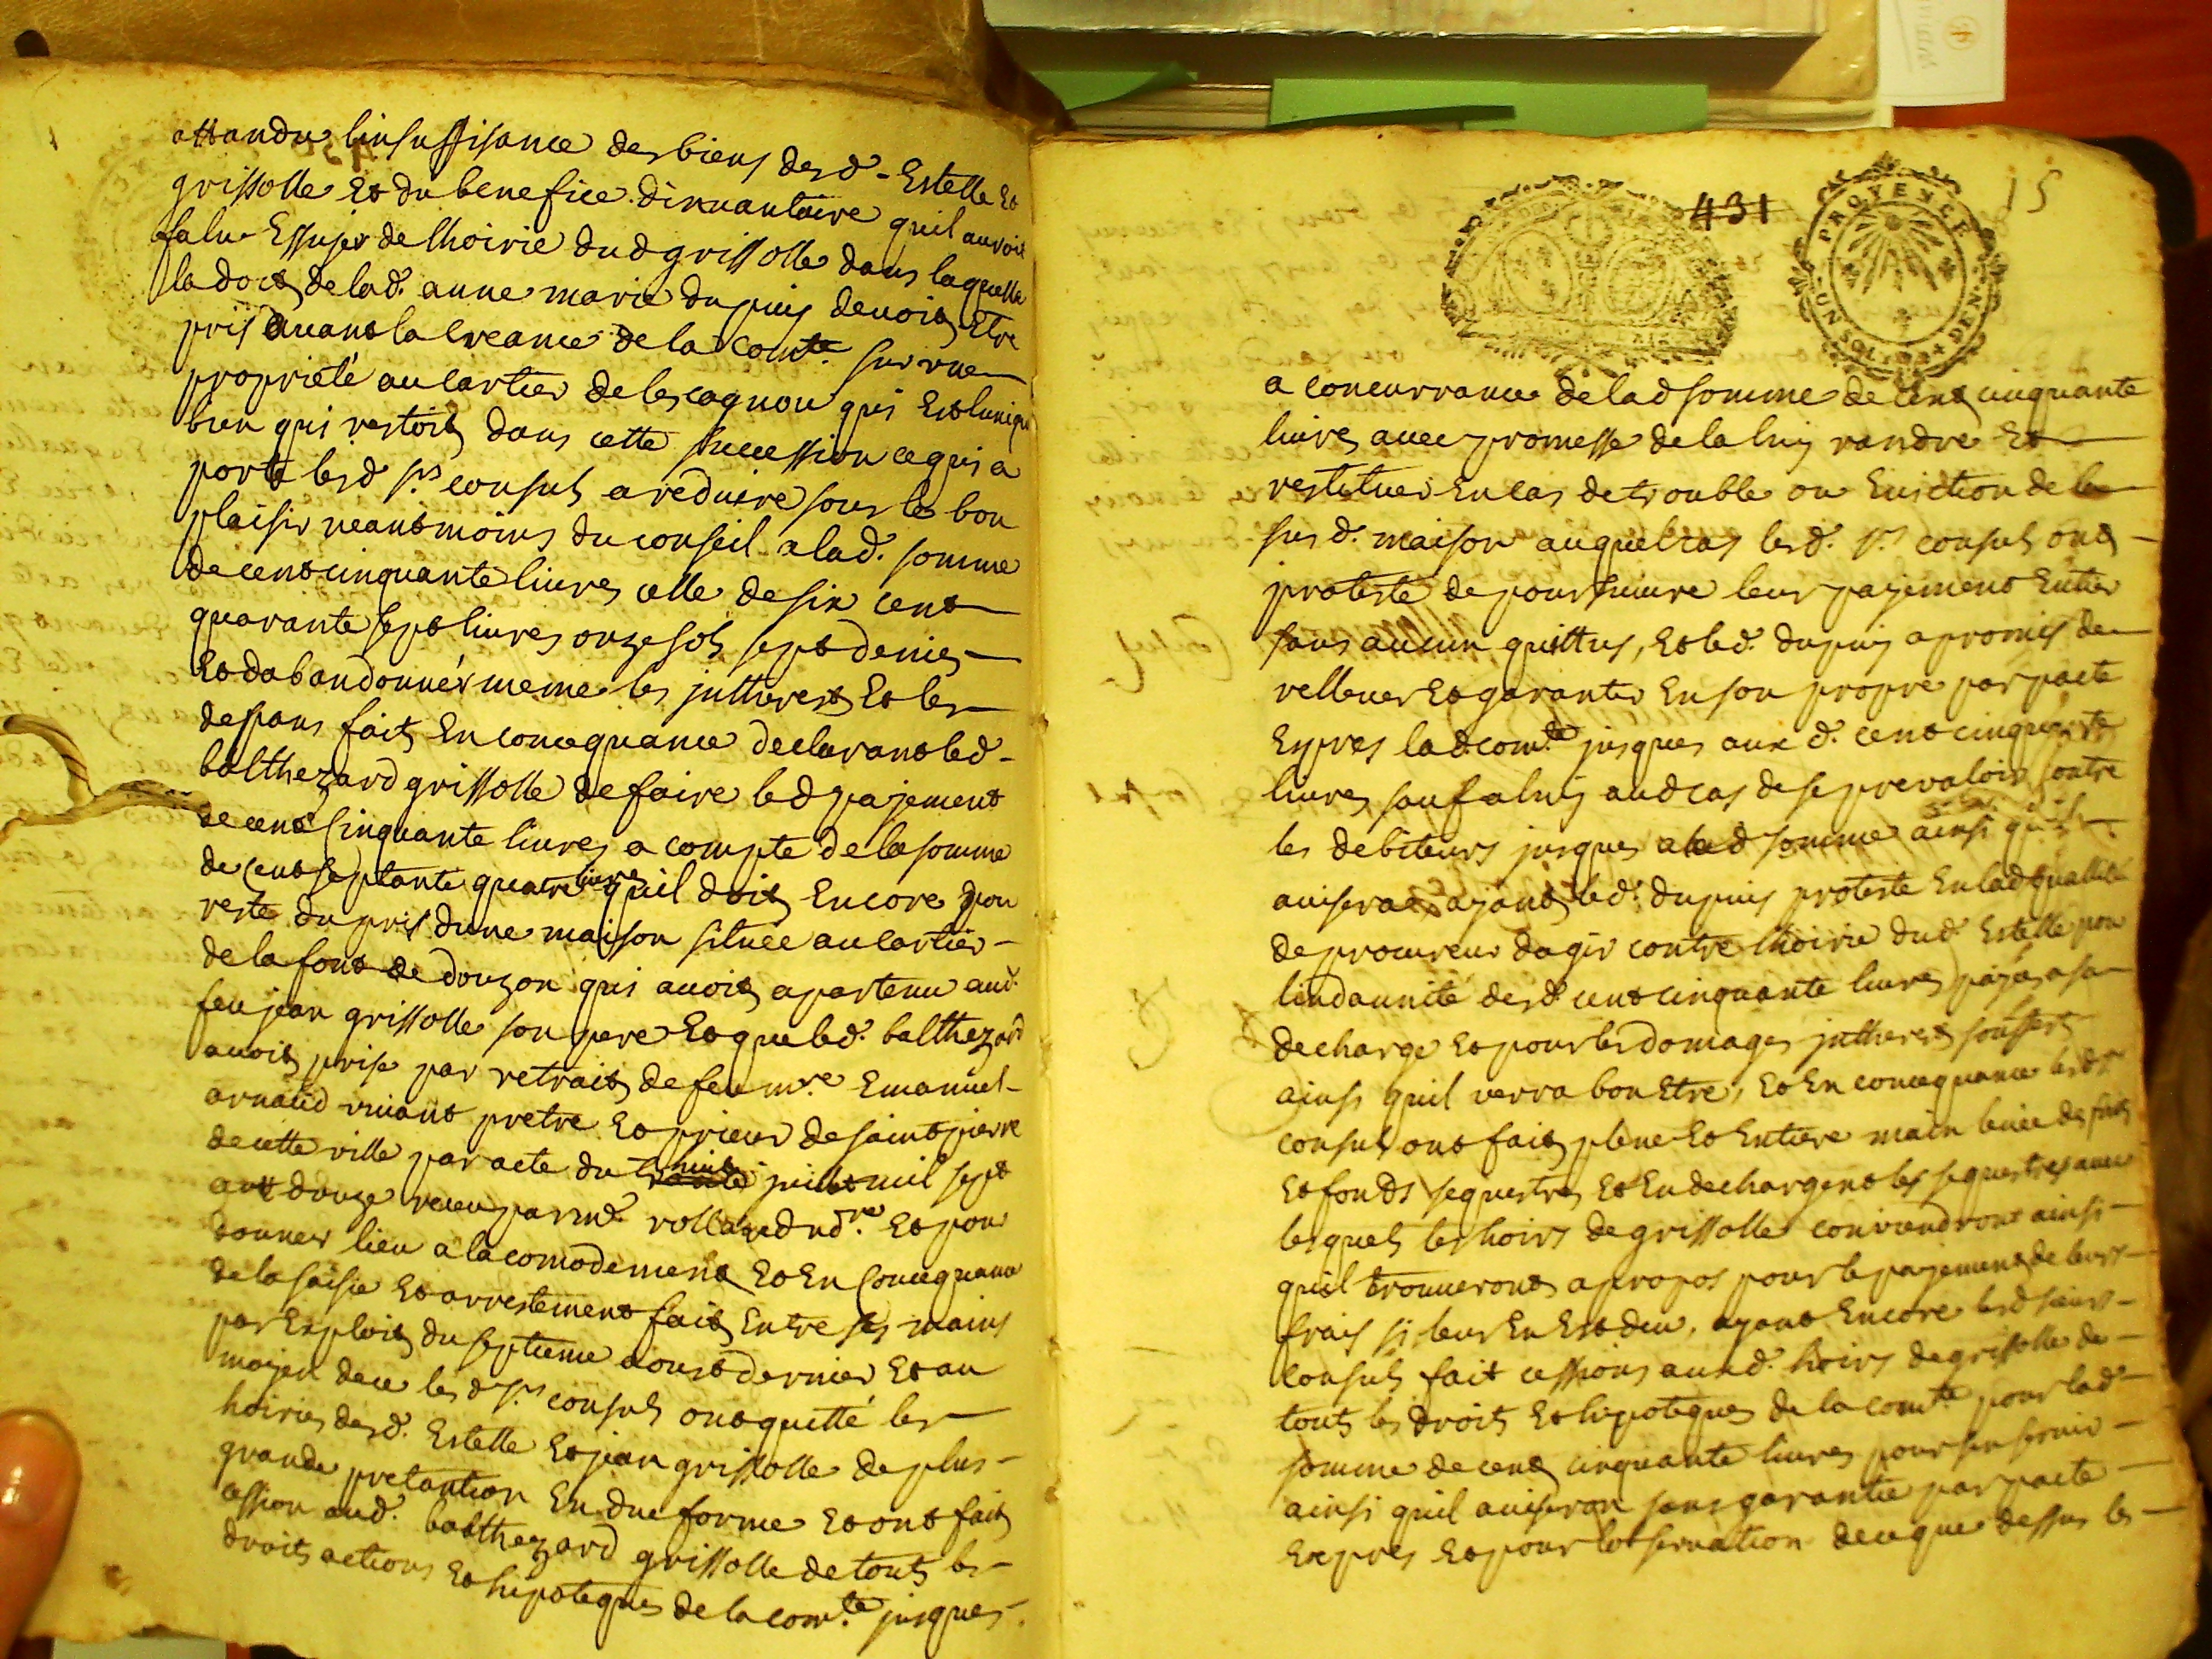 attandu linsuffisance des biens desd. Estelle Et
grissolle Et du benefice dinvantaire quil auroit
falu Essuyer de lhoirie dud grissolle dans laquelle
la dot de lad. anne marie dupuy devoit Etre
pris avant la creance de la comte. sur une
proprieté au cartier de lescagnou qui Est lunique
bien qui restoit dans cette succession ce qui a
porté lesd srs consuls a reduire sous le bon
plaisir neantmoins du conseil a lad. somme
de cent cinquante livres celle de six cent
quarante sept livres onze sols sept deniers
Et dabandonner meme les jntherests Et les
depans faits En consequance declarant led.
balthezard grissolle de faire led payement
de cent Cinquante livres a compte de la somme
de cent septante quatre livres quil doit Encore pour
reste du pris dune maison situee au cartier
de la font de douzon qui avoit apartenu aud.
feu jean grissolle son pere Et que led. balthezard
avoit prise par retrait de feu mre Emanuel
arnaud vivant pretre Et prieur de saint pierre
de cette ville par acte du huit juillet mil sept
cent douze receu par me. rolland nore. Et pour
donner lieu a lacomodement Et En Consequance
de la saisie Et arrestement fait Entre ses mains
par Exploit du septieme aoust dernier Et au
moyen de ce les d srs consuls ont quitté les
hoiries desd. Estelle Et jean grissolle de plus
grande pretantion En due forme Et ont fait
cession aud. balthezard grissolle de touts les
droits actions Et hipoteques de la comte. jusques
431
15
PROVENCE
UN SOL
DEN
a concurrance de lad somme de cent cinquante
livres avec promesse de la luy randre Et
restituer En cas de trouble ou Eviction de la
susd. maison auquel cas lesd. srs consuls ont
protesté de poursuivre leur payement Entier
sans aucun quittus, Et led. dupuy a promis de
rellever Et garantir En son propre par pacte
Expres lad comte. jusques aux d. cent cinquante
livres sauf a luy aud cas de se prevaloir contre
les debiteurs jusques a lad somme ainsi quil
avisera ayant led. dupuy protesté En lad quallité
de procureur dagir contre lhoirie dud Estelle pour
lindannité desd cent cinquante livres payés a sa
decharge Et pour les domages jntherests souffert
ainsi quil verra bon Etre, Et En consequance lesd srs
consuls ont fait plene Et Entiere main levée des fruits
Et fonds sequestres Et En dechargent les sequestres avec
lesquels les hoirs de grissolle conviendront ainsi
quil trouveront apropos pour le payement de leurs
frais si leur En Est deu, ayant Encore lesd sieurs
consuls fait cessions auxd. hoirs de grissolle de
touts les droits Et hipoteques de la comte pour lad
somme de cent cinquante livres pour sen servir
ainsi quil aviseron sans garantie par pacte
Expres Et pour lobservation de ce que dessus les